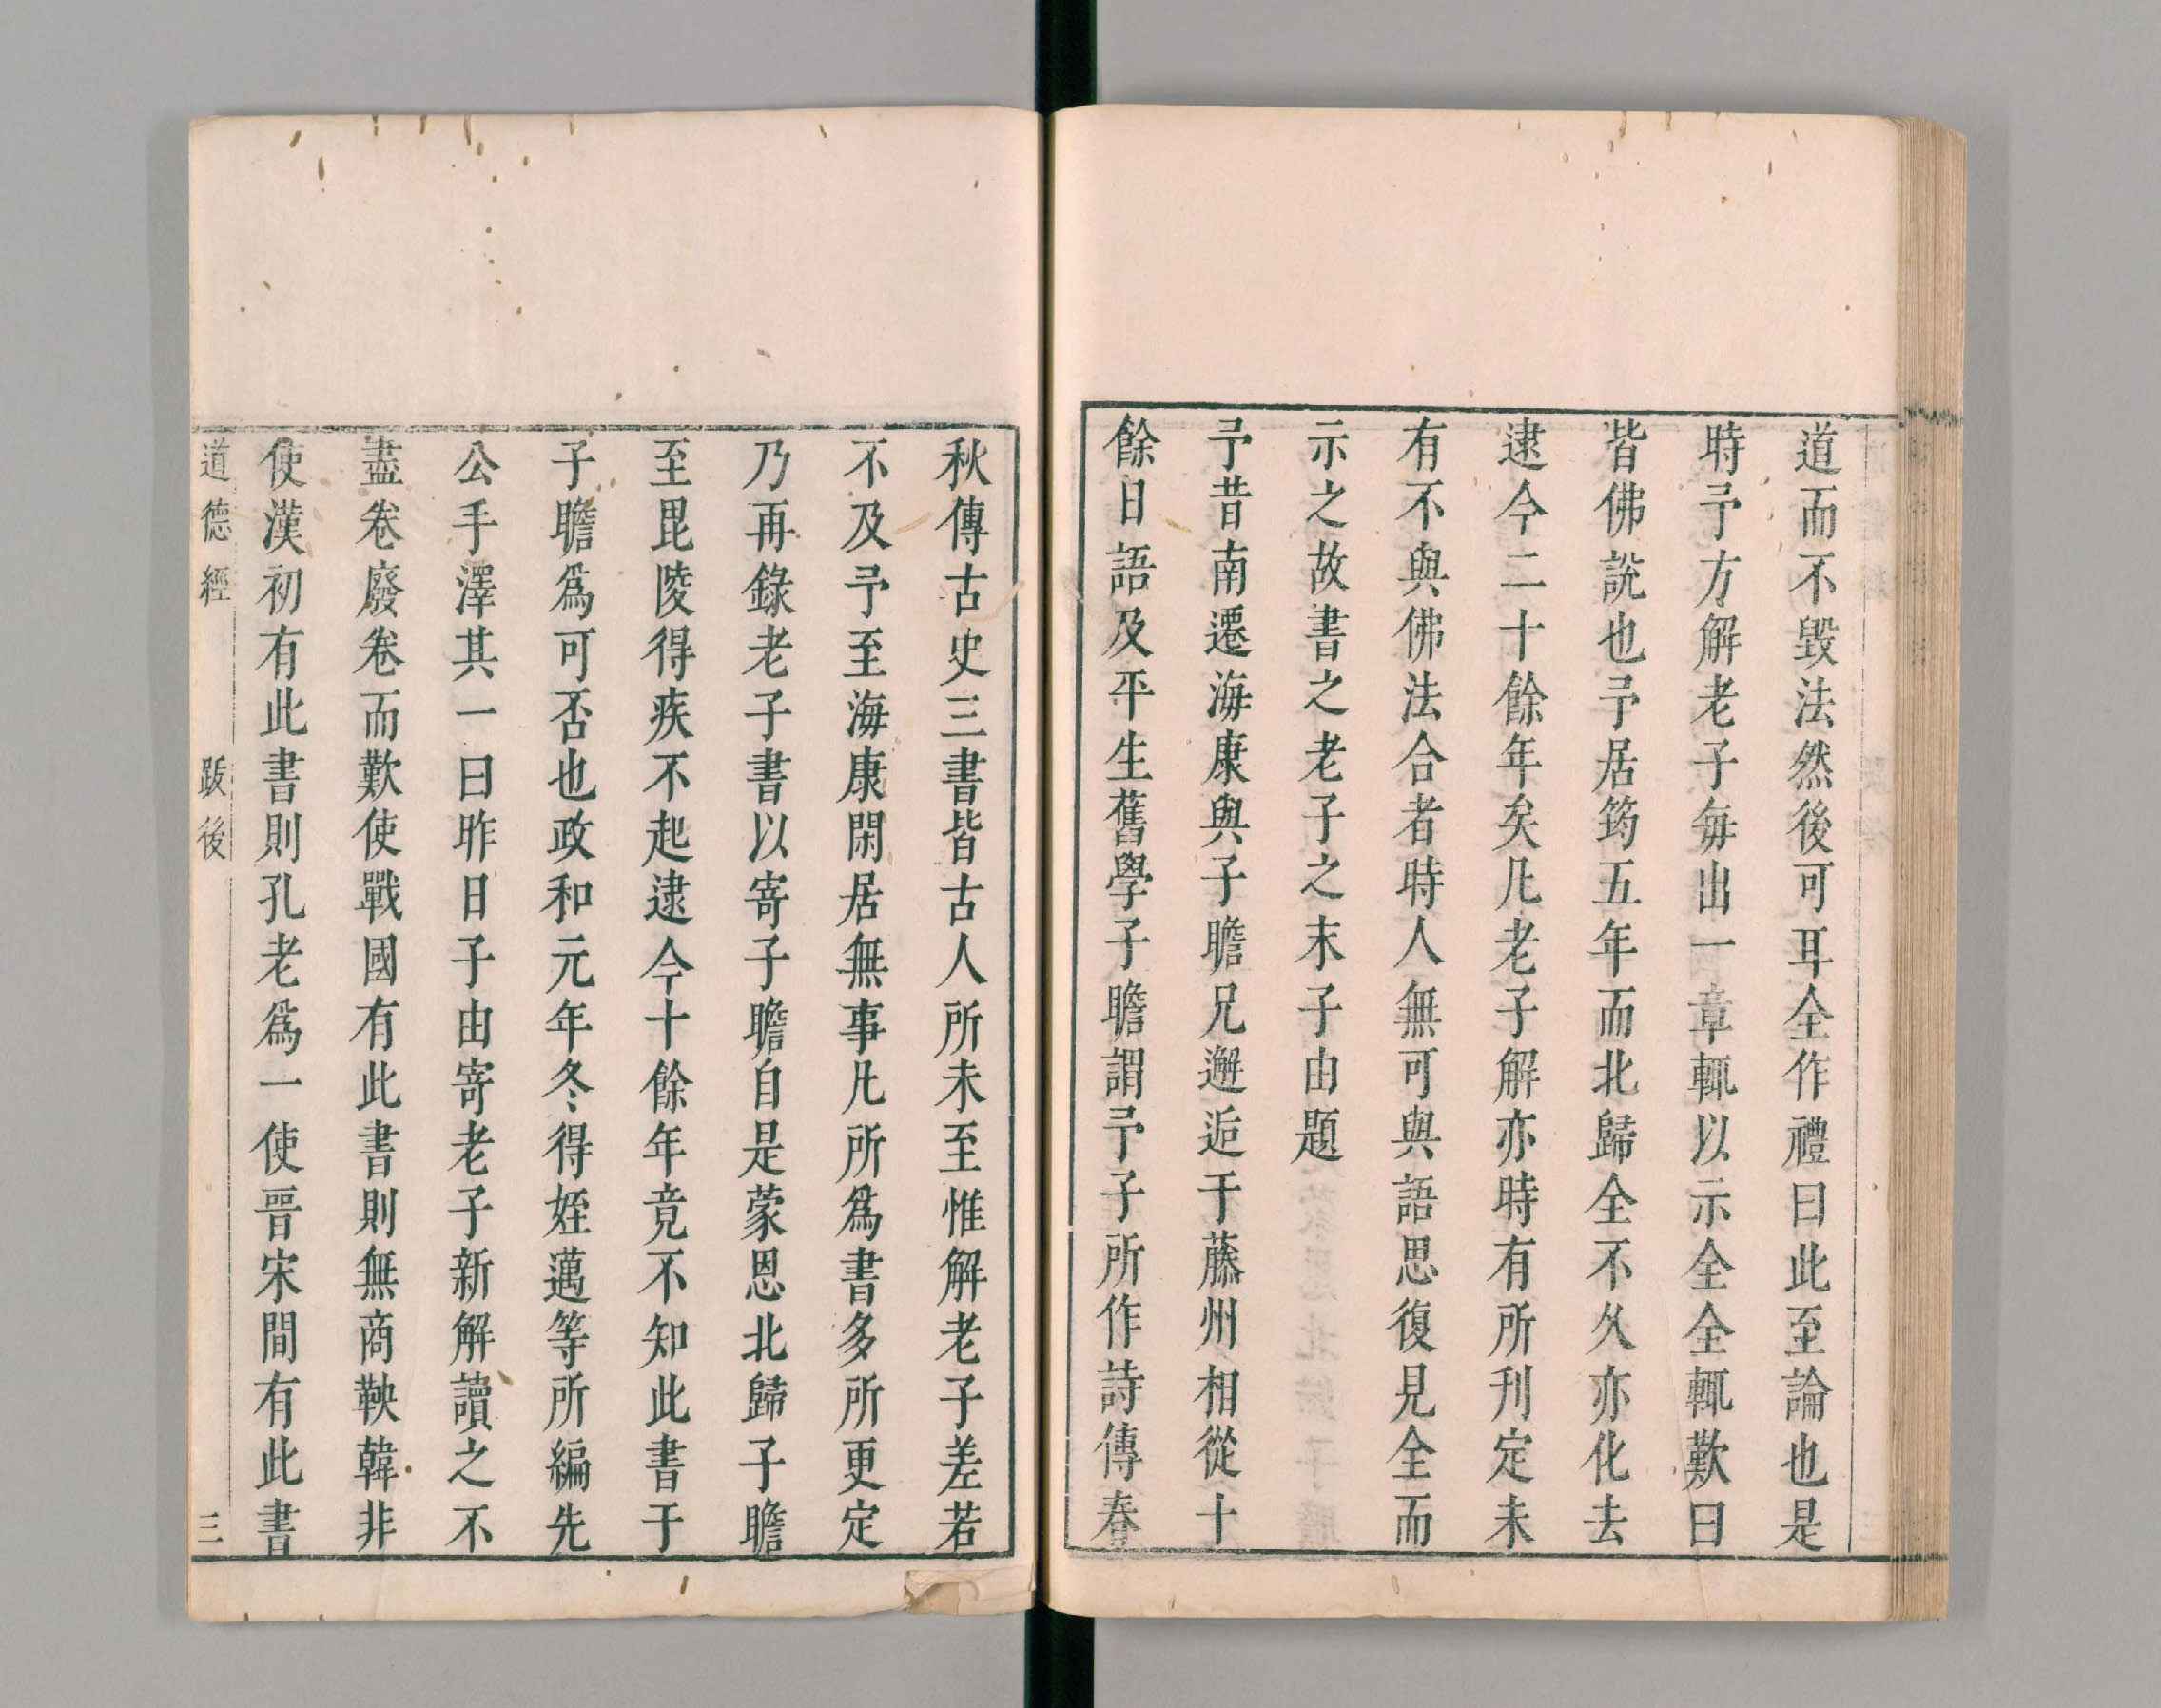 道而不毀法然後可耳全作禮曰此至論也是
時予方解老子每出一章輒以示全全輒歎曰
皆佛說也予居筠五年而北歸全不久亦化去
逮今二十餘年矣凡老子解亦時有所刊定未
有不與佛法合者時人無可與語思復見全而
示之故書之老子之末子由題
予昔南遷海康與子瞻兄邂逅于藤州相從十
餘日語及平生舊學子瞻謂予子所作詩傳春
秋傳古史三書皆古人所未至惟解老子差若
不及予至海康閑居無事凡所爲書多所更定
乃再錄老子書以寄子瞻自是蒙恩北歸子瞻
至毘陵得疾不起逮今十餘年竟不知此書于
子瞻爲可否也政和元年冬得姪邁等所編先
公手澤其一曰昨日子由寄老子新解讀之不
盡卷廢卷而歎使戰國有此書則無商鞅韓非
使漢初有此書則孔老爲一使晉宋間有此書
道德經 跋後 三